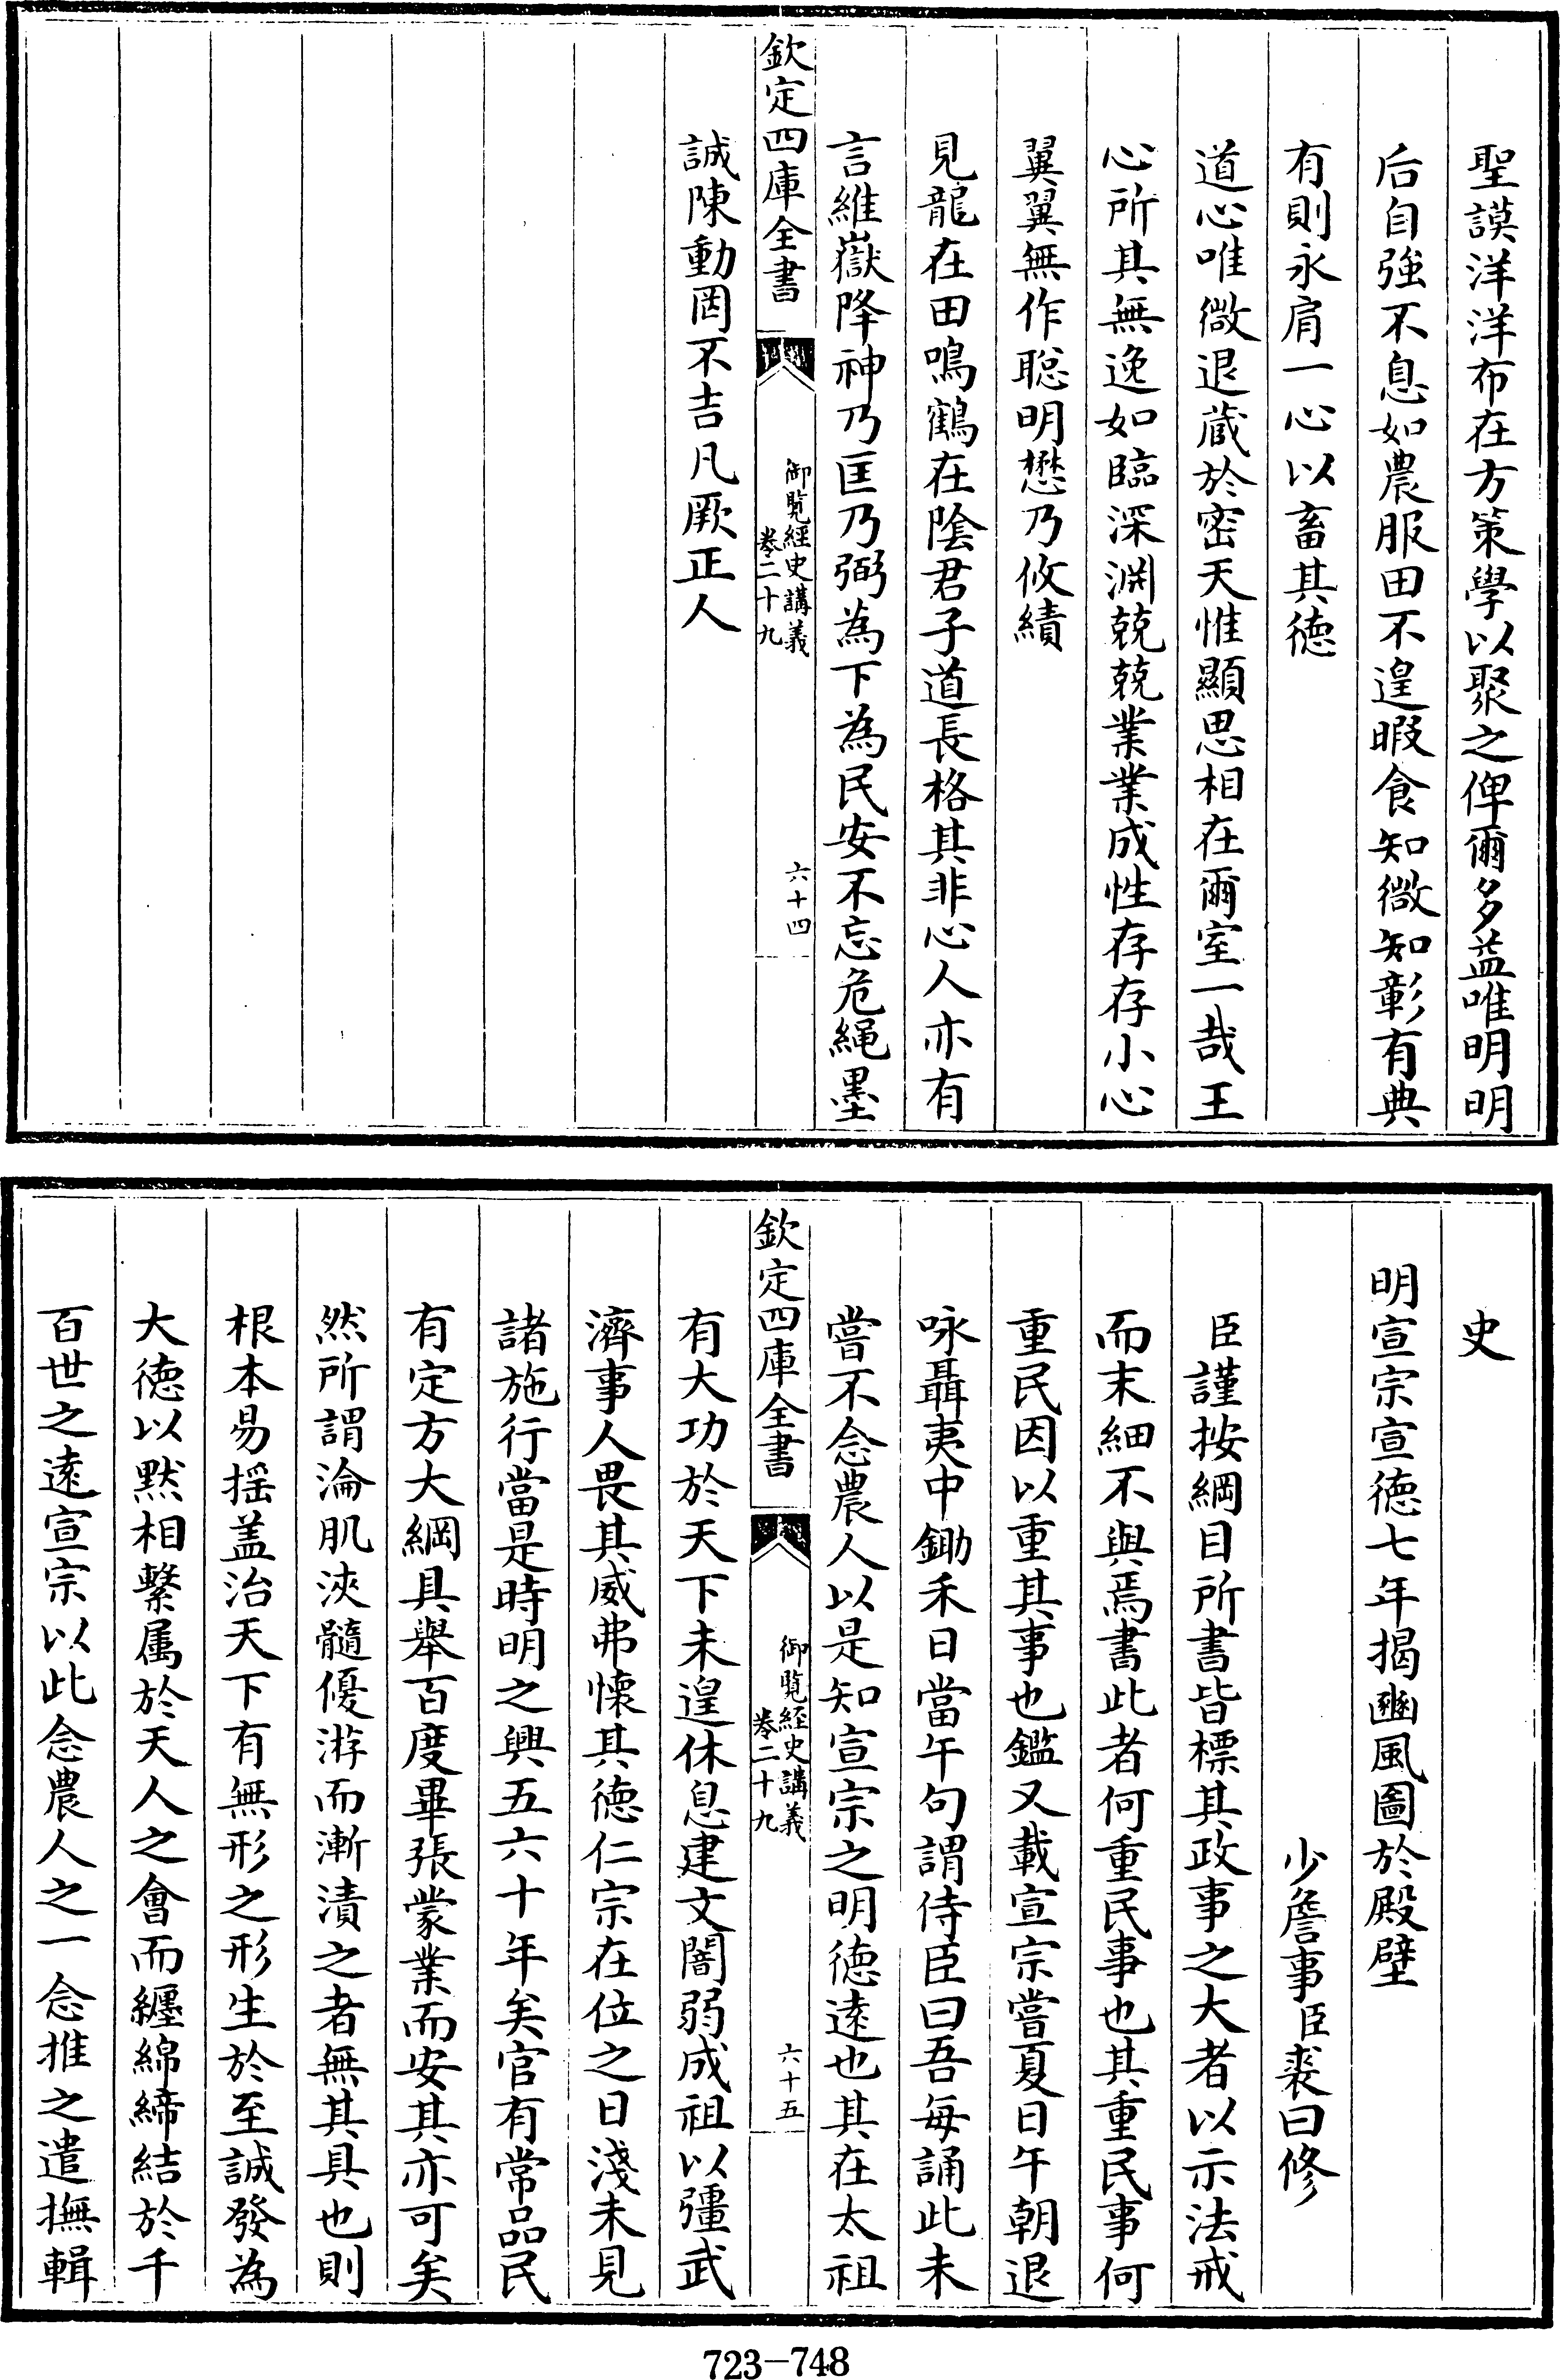 聖謨洋洋布在方策學以聚之俾爾多益唯明明
后自強不息如農服田不遑暇食知微知彰有典
有則永肩一心以畜其德
道心唯微退藏於密天惟顯思相在爾室一哉王
心所其無逸如臨深淵兢兢業業成性存存小心
翼翼無作聰明懋乃攸績
見龍在田鳴鶴在陰君子道長格其非心人亦有
言維嶽降神乃匡乃弼為下為民安不忘危繩墨
欽定四庫全書
御覽經史講義
卷二十九
六十四
誠陳動罔不吉凡厥正人
史
明宣宗宣德七年揭豳風圖於殿壁
少詹事臣裘曰修
臣謹按綱目所書皆標其政事之大者以示法戒
而末細不與焉書此者何重民事也其重民事何
重民因以重其事也鑑又載宣宗嘗夏日午朝退
咏聶夷中鋤禾日當午句謂侍臣曰吾每誦此未
嘗不念農人以是知宣宗之明德遠也其在太祖
欽定四庫全書
御覽經史講義
卷二十九
六十五
有大功於天下未遑休息建文闇弱成祖以彊武
濟事人畏其威弗懷其德仁宗在位之日淺未見
諸施行當是時明之興五六十年矣官有常品民
有定方大綱具舉百度畢張蒙業而安其亦可矣
然所謂淪肌浹髓優游而漸漬之者無其具也則
根本易搖蓋治天下有無形之形生於至誠發為
大德以默相繫屬於天人之會而纏綿締結於千
百世之遠宣宗以此念農人之一念推之遣撫輯
723-748